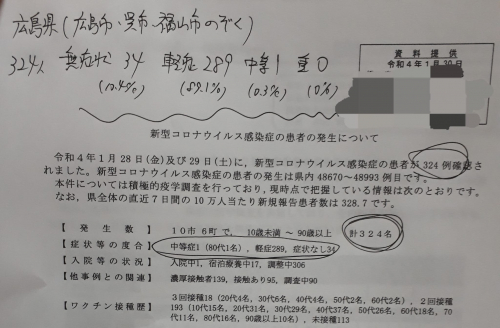 広島県(広島市、呉市、福山市のぞく)
324人 無症状 34 軽症 289 中等 1 重 0
(10.4%) (89.1%) (0.3%) (0%)
資料提供
令和4年1月30日
新型コロナウイルス感染症の患者の発生について
令和4年1月28日(金)及び29日(土)に、新型コロナウイルス感染症の患者が324例確認さ
れました。新型コロナウイルス感染症の患者の発生は県内48670~48993例目です。
本件については積極的疫学調査を行っており、現時点で把握している情報は次のとおりです。
なお、県全体の直近7日間の10万人当たり新規報告患者数は328.7です。
【発生数】 10市6町で、10歳未満~90歳以上 計324名
【症状等の度合】 中等症1(80代1名)、軽症289、症状なし34
【入院等の状況】 入院中1、宿泊療養中17、調整中306
【他事例との関連】 濃厚接触者139、接触あり95、調査中90
【ワクチン接種歴】 3回接種18(20代4名、30代6名、40代4名、50代2名、60代2名)、2回接種
193(10代15名、20代31名、30代29名、40代37名、50代26名、60代18名、70
代11名、80代16名、90歳以上10名)、未接種113